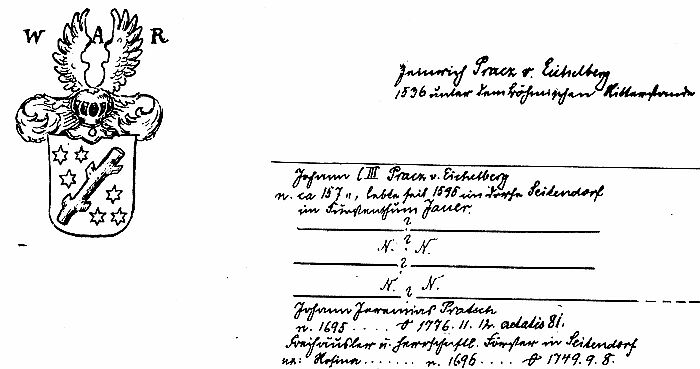 W A R
Heinrich Pracz v. Eichelberg
1536 unter dem böhmischen Ritterstande
Johann (III Pracz v. Eichelberg
n. ca 157", lebte seit 1595 im dorfe Seitendorf
im Fürstenthum Jauer.
?
N. ? N.
?
N. ? N.
Johann Jeremias Pratsch
n. 1695 .... 1776. 11. 12. aetatis 81.
Freihäusler u. herrschaftl. Förster in Seitendorf
ux: Rosina ....... n. 1696 .... 1749. 9. 8.